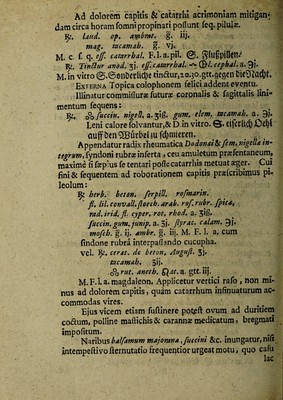 Ad dolorem capitis & catarrhi acrimoniam mitigan-
dam circa horam somni propinari possunt seq. pilulæ.
℞. laud. op. ambrat. g. iij.
mag. tacamah. g. vj.
M. c. s. q. ess. catarrhal. F.l.a. pil. S. Flußpillen/
℞. Tinctur anod. ʒj. ess. catarrhal. cephal. a. ℈j.
M. in vitro S. Sonderliche tinctur, 20.30. gtt. gegen die Nacht.
EXTERNA Topica colophonem felici addent eventu.
Illinatur commissuræ futuræ coronalis & sagittalis lini-
mentum sequens:
℞. succin. nigell. a. ʒiß. gum. elem. tacamah. a. ℈j.
Leni calore solvantur, & D. in vitro. S. eiserlich Oehl
auff den Würbel zu schmieren.
Appendatur radix rheumatica Dodonai & sem. nigellæ in-
tegrum, syndoni rubræ inserta, ceu amuletum præsentaneum,
maximè si sæpius se tentari posse catarrhis metuat æger. Cui
fini & sequentem ad roborationem capitis præscribimus pi-
leolum:
℞. herb. beton. serpill. rosmarin.
fl. lil. convall. stoech. arab. ros. rubr. spica,
rad. irid. fl. cyper. rot. rhod. a. ʒiß.
succin. gum. junip. a. ʒj. styrac. calam. ℈j.
mosch. g. ij. ambr. g. iij. M. F. l. a. cum
sindone rubrâ interpassando cucupha.
vel. ℞. cerat. de beton. August. ʒj.
tacamah. ʒij.
rut. aneth. a. gtt. iij.
M.F.l.a. magdaleon. Applicetur vertici raso, non mi-
nus ad dolorem capitis, quàm catarrhum insinuaturum ac-
commodas vires.
Ejus vicem etiam sustinere potest ovum ad duritiem
coctum, polline mastichis & carannæ medicatum, bregmati
impositum.
Naribus balsamum majorana, succini &c. inungatur, nisi
intempestivo sternutatio frequentior urgeat motu, quo casu
lac